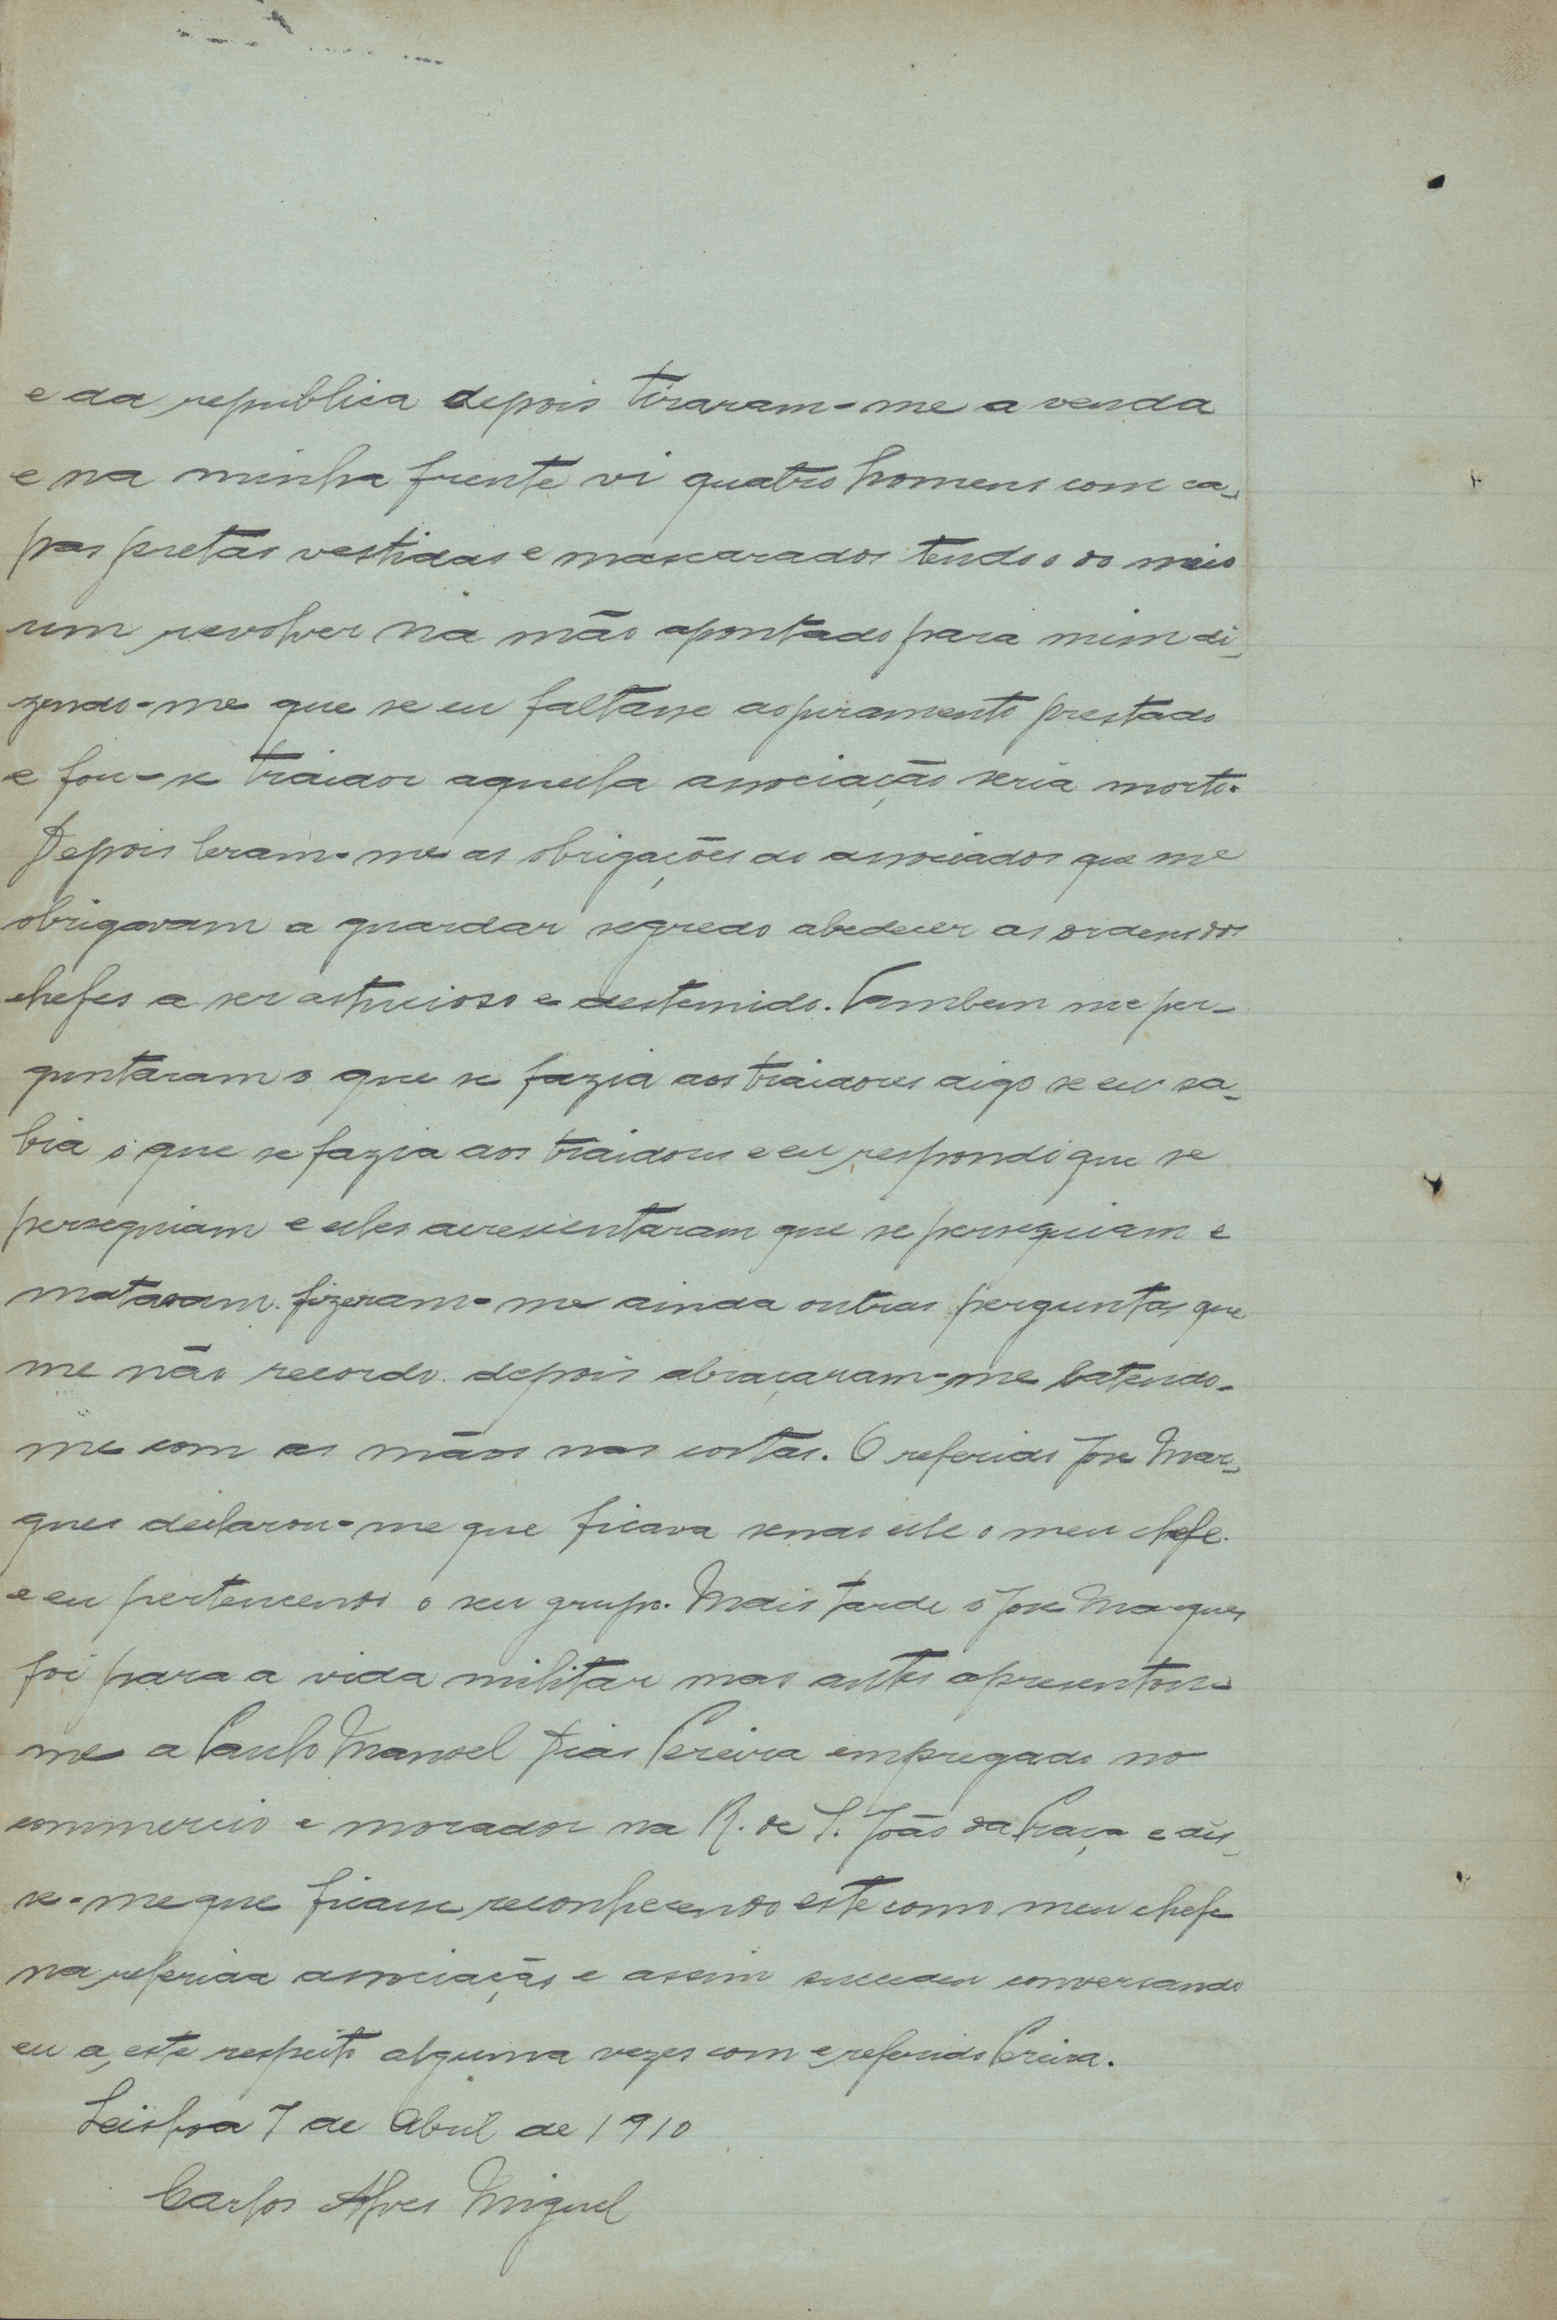 e da republica depois tiraram-me a venda
e na minha frente vi quatro homens com ca-
pas pretas vestidas e mascarados tendo o do meio
um revolver na mão apontado para mim di-
zendo-me que se eu faltasse ao juramento prestado
e fou-se traidor aquella associação seria morto.
Depois leram-me as obrigações do associados que me
obrigavam a guardar segredo abedecer as ordens dos
chefes a ser astucioso e destemido. Tambem me per-
guntaram o que se fazia aos traidores digo se eu sa-
bia o que se fazia aos traidores e eu respondi que se
perseguiam e elles acresientaram que se perseguiam e
matavam. fizeram-me ainda outras perguntas que
me não recordo. depois abraçaram-me batendo-
me com as mãos nas costas. O referido Jose Mar-
ques declarou-me que ficava sendo elle o meu chefe.
e eu pertencendo o seu grupo. Mais tarde o Jose Marques
foi para a vida militar mas antes apresentou-
me a Paulo Manoel Dias Pereira empregado no
commercio e morador na R. de S. João da Praça e dis-
se-me que ficasse reconhecendo este como meu chefe
na referida associação e assim succedeu conversando
eu a este respeito alguma vezes com e referido Pereira.
Leisboa 7 de Abril de 1910
Carlos Alves Miguel